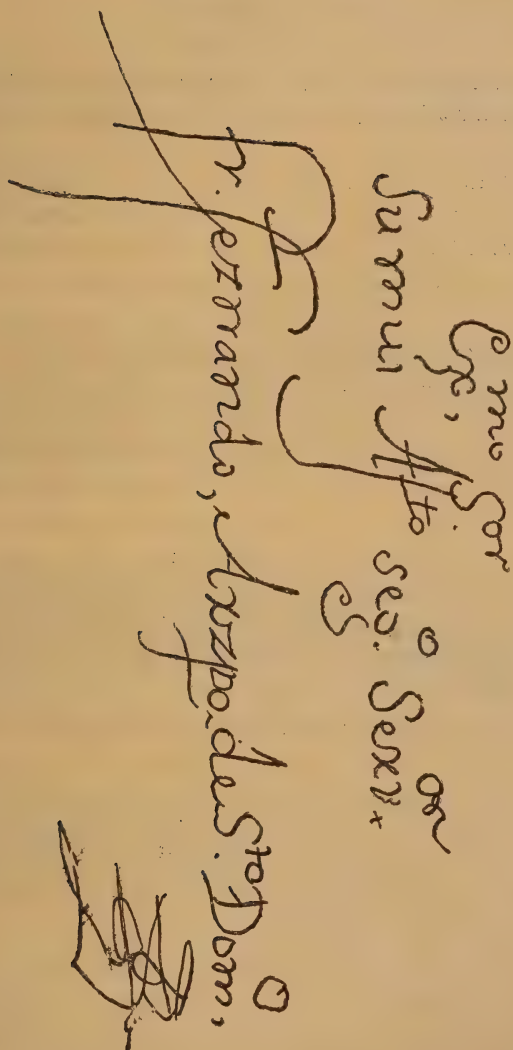 Exmo Sor
Su mui Afto segº. Servor
Fr. Fernando, Arzpo. de Sto Domº,